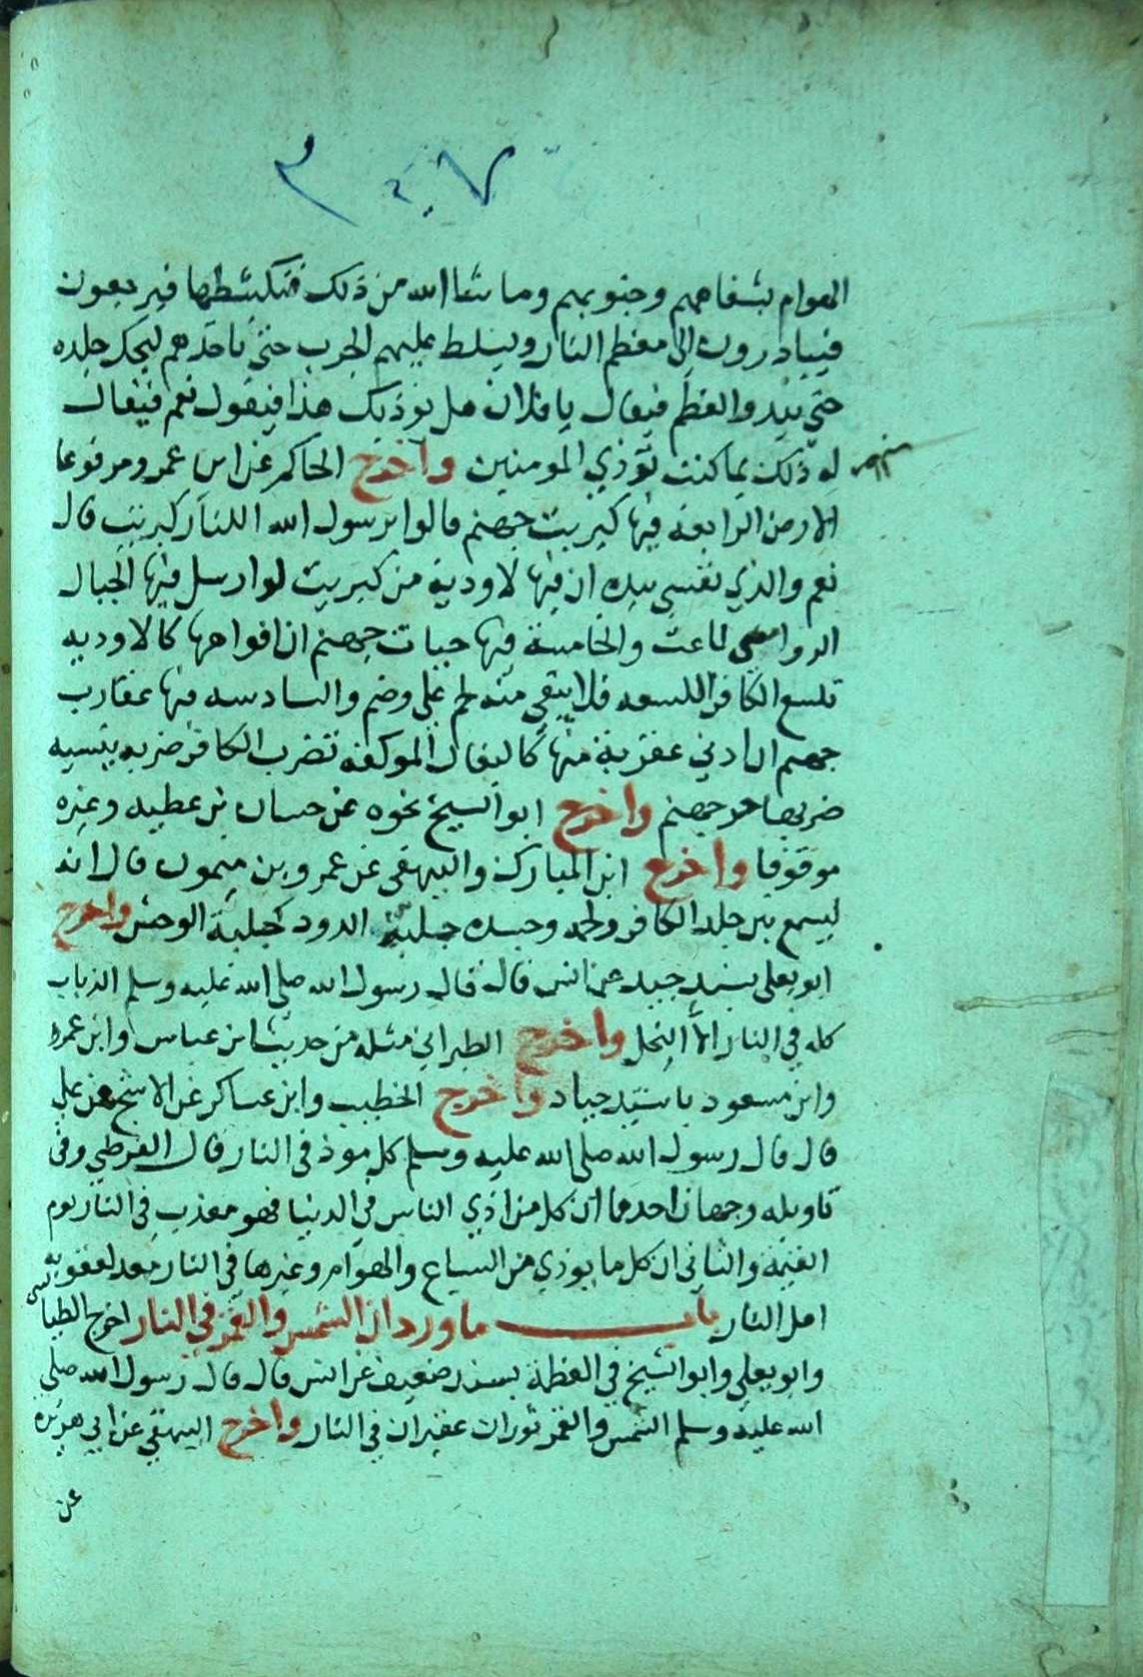 الهوام بشفاههم وجنوبهم وما شا الله من ذلك فتكشطها فيرجعون
فيبادرون الى معظم النار ويسلط عليهم الجرب حتى ان احدهم ليحك جلده
حتى يبدو العظم فيقال يا فلان هل يوذيك هذا فيقول نعم فيقال
له ذلك بما كنت توذي المومنين واخرج الحاكم عن ابن عمرو مرفوعا
الارض الرابعة فيها كبريت جهنم قالوا يرسول الله اللنار كبريت قال
نعم والذي نفسي بيده ان فيها لاودية من كبريت لو ارسل فيها الجبال
الرواسي لماعت والخامسة فيها حيات جهنم ان افواهها كالاوديه
تلسع الكافر اللسعه فلا يبقي منه لحم علي وضم والسادسه فيها عقارب
جهنم ان ادني عقربة منها كالبغال الموكفه تضرب الكافر ضربه ينسيه
ضربها حر جهنم واخرج ابو الشيخ نحوه عن حسان بن عطيه وغيره
موقوفا واخرج ابن المبارك والبيهقي عن عمرو بن ميمون قال انه
ليسمع بين جلد الكافر ولحمه وجسده جلبة الدود كجلبة الوحش واخرج
ابو يعلي بسند جيد عن انس قال قال رسول الله صلى الله عليه وسلم الذباب
كله في النار الا النحل واخرج الطبراني مثله من حديث ابن عباس وابن عمر
وابن مسعود باسنيد جياد واخرج الخطيب وابن عساكر عن الاشج عن علي
قال قال رسول الله صلى الله عليه وسلم كل موذ في النار قال القرطبي وفي
تاويله وجهان احدهما ان كل من اذي الناس في الدنيا فهو معذب في النار يوم
القيمة والثاني ان كل ما يوذي من السباع والهوام وغيرها في النار معد لعقوبه
اهل النار باب ما ورد ان الشمس والقمر في النار اخرج الطيالسي
وابو يعلي وابو الشيخ في العظمة بسند ضعيف عن انس قال قال رسول الله صلي
الله عليه وسلم الشمس والقمر ثوران عقيران في النار واخرج البيهقي عن ابي هريرة
عن